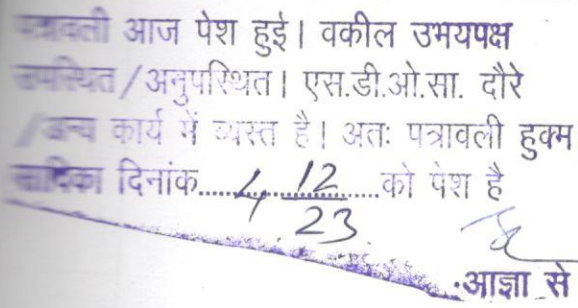 पत्रावली आज पेश हुई। वकील उभयपक्ष
उपस्थित/अनुपस्थित। एस.डी.ओ.सा. दौरे
/अन्य कार्य में व्यस्त है। अतः पत्रावली हुक्म
सादिका दिनांक....4 12/23....को पेश है
आज्ञा से